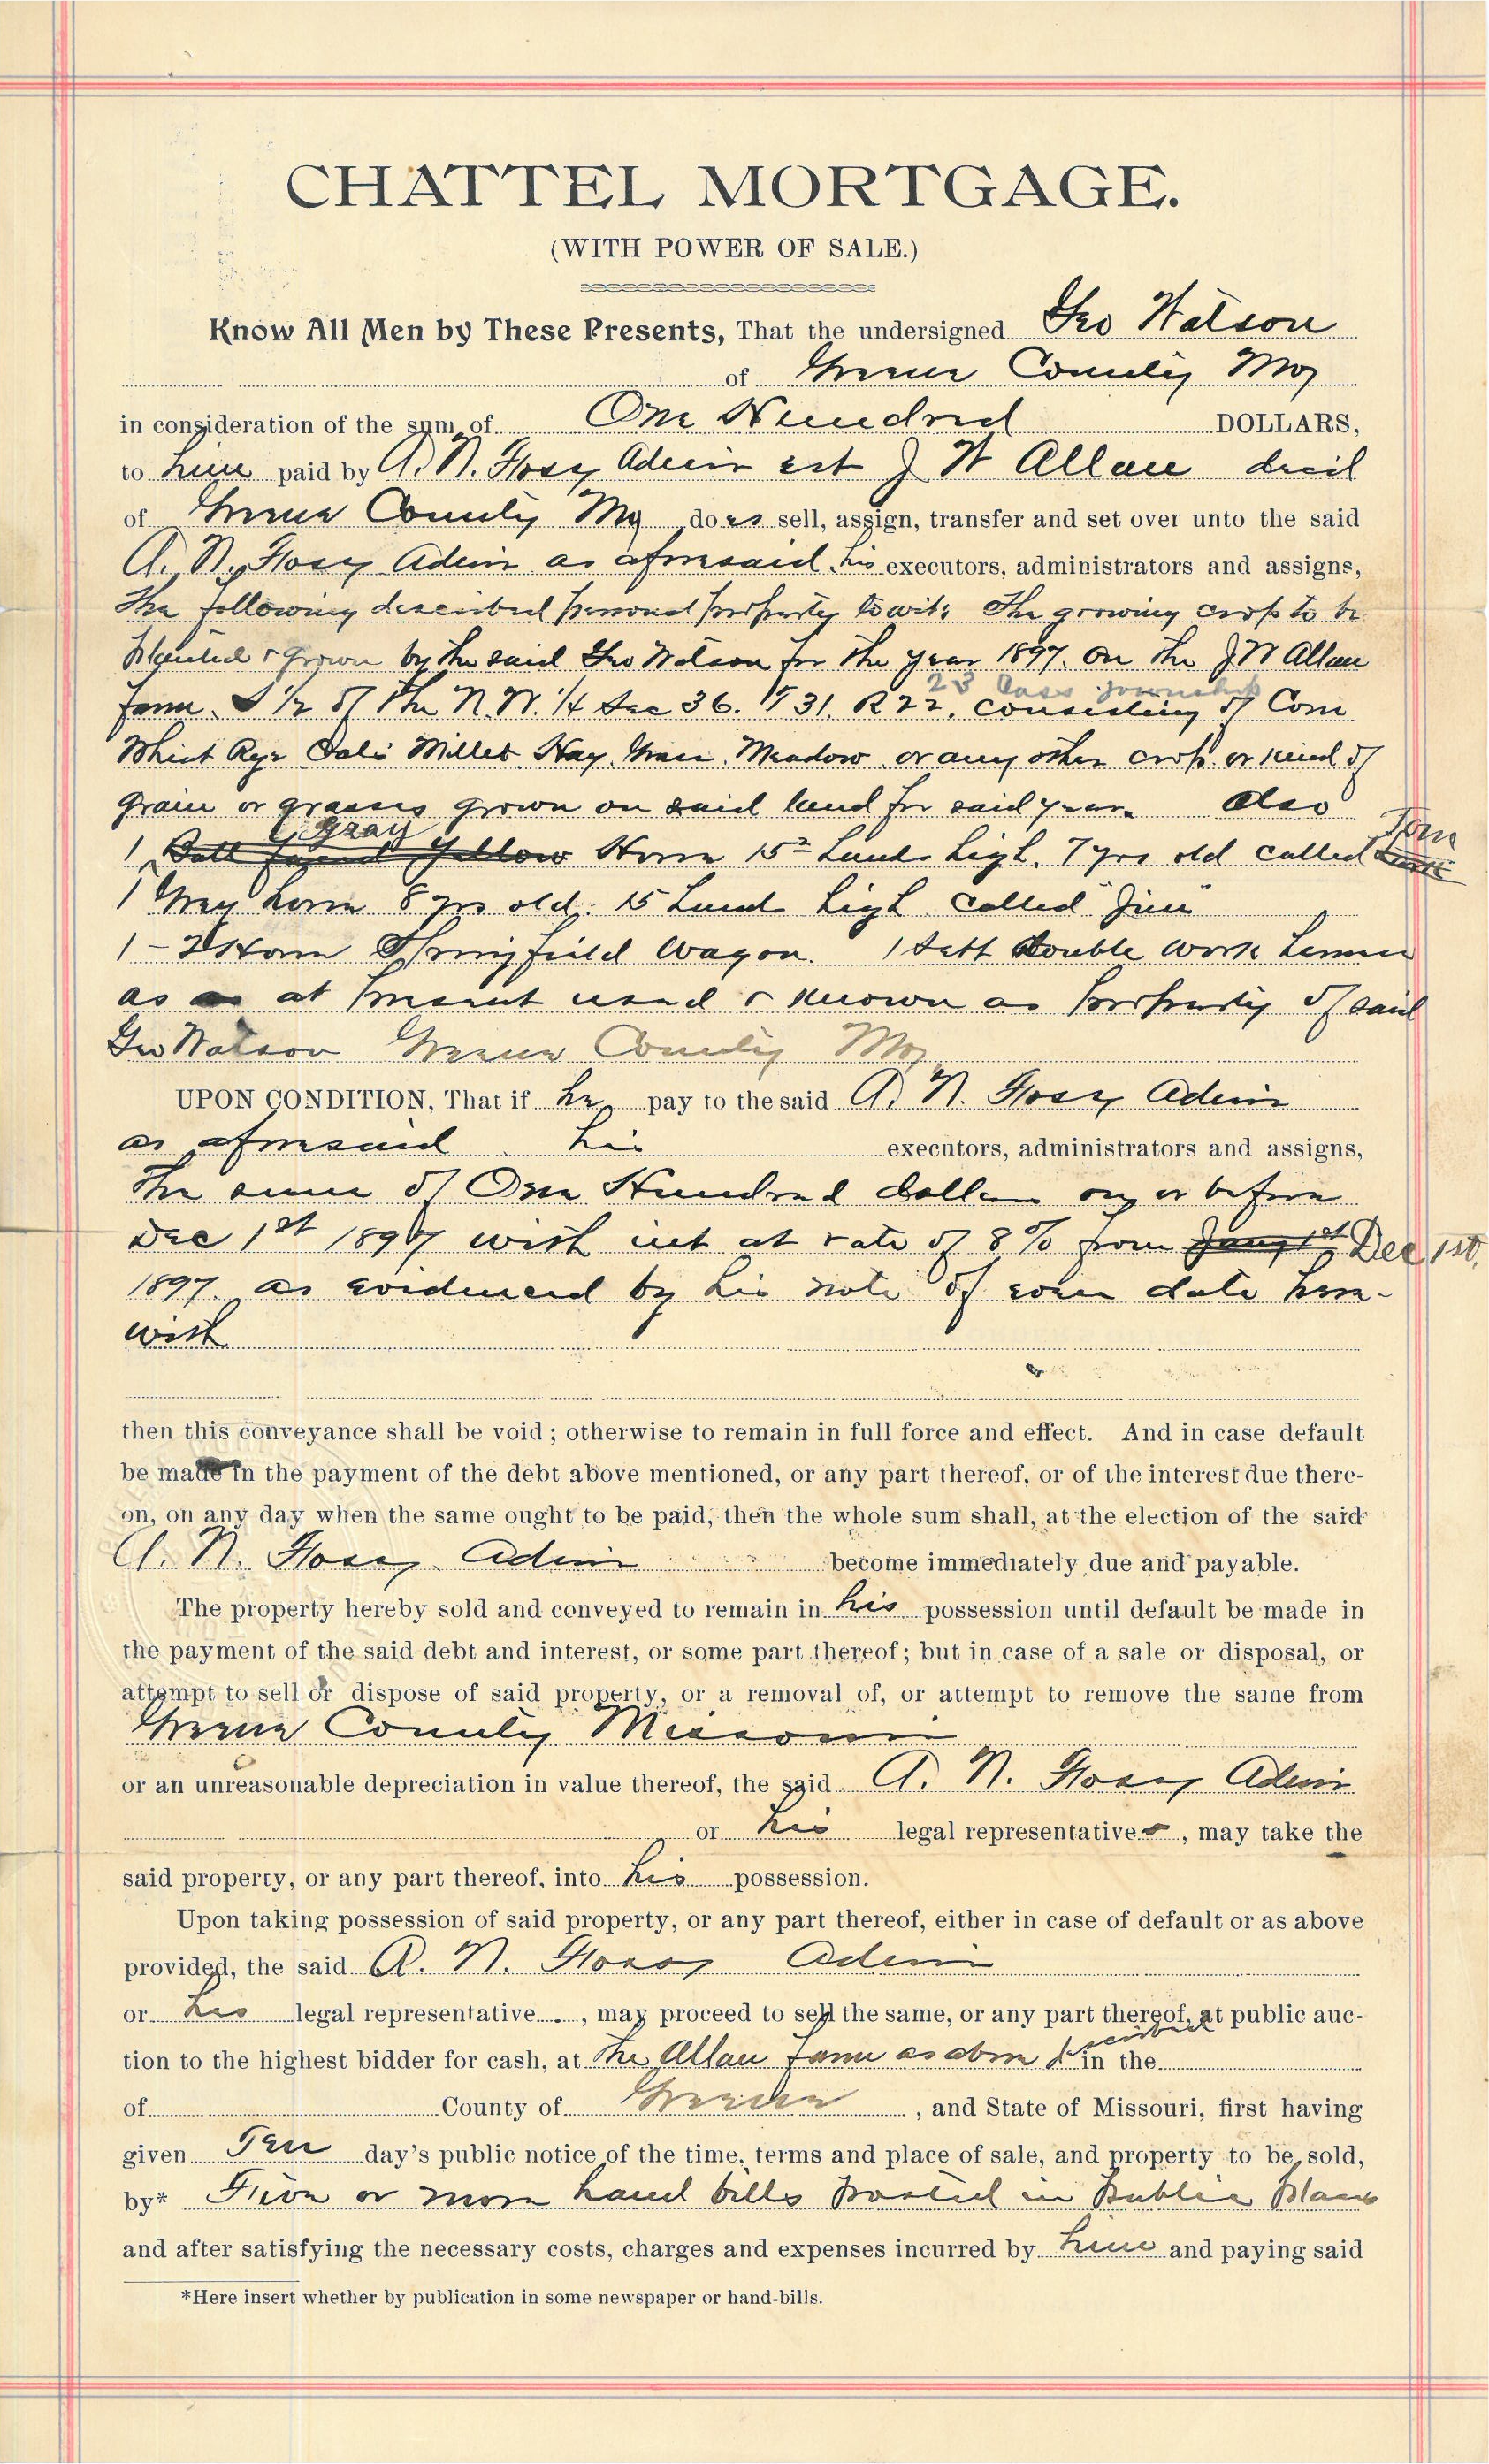 CHATTEL MORTGAGE.
(WITH POWER OF SALE.)
Know All Men by These Presents, That the undersigned Geo Watson
of Greene County Mo
in consideration of the sum of One Hundred DOLLARS,
to him paid by A. N. Admin est J W Allan decd
of Greene County Mo does sell, assign, transfer and set over unto the said
A. N. Admin as aforesaid his executors, administrators and assigns,
The following described personal property towit: The growing crop to be
planted & grown by the said Geo Watson for the year 1897. on the J W Allan
23 Cass township
farm. S 1/2 of the N.W. 1/4 Sec 36. T 31. R 22. consisting of Corn
Wheat Rye Oats Millet Hay. Grass. Meadow or any other crop or kind of
grain or grasses grown on said land for said year. Also
Gray Tom
1 Yellow Horse 15 2 hands high. 7 yrs old called
1 Grey horse 8 yrs old. 15 hands high called "Jim"
1 - 2 Horse Springfield Wagon. 1 Sett double work harness
as at present used & known as property of said
Geo Watson Greene County Mo
UPON CONDITION, That if he pay to the said A. N. Admin
as aforesaid his executors, administrators and assigns,
The sum of One Hundred dollars on or before
Dec 1st 1897 with int at rate of 8% from Jany 1st Dec 1st,
1897. as evidenced by his note of even date here-
with
then this conveyance shall be void; otherwise to remain in full force and effect. And in case default
be made in the payment of the debt above mentioned, or any part thereof, or of the interest due there-
on, on any day when the same ought to be paid, then the whole sum shall, at the election of the said
A. N. Admin become immediately due and payable.
The property hereby sold and conveyed to remain in his possession until default be made in
the payment of the said debt and interest, or some part thereof; but in case of a sale or disposal, or
attempt to sell or dispose of said property, or a removal of, or attempt to remove the same from
Greene County Missouri
or an unreasonable depreciation in value thereof, the said A. N. Admin
or his legal representatives, may take the
said property, or any part thereof, into his possession.
Upon taking possession of said property, or any part thereof, either in case of default or as above
provided, the said A. N. Admin
or his legal representative, may proceed to sell the same, or any part thereof, at public auc-
tion to the highest bidder for cash, at The Allan farm as above described in the
of County of Greene, and State of Missouri, first having
given Ten day's public notice of the time, terms and place of sale, and property to be sold,
by* Five or more hand bills posted in Public Places
and after satisfying the necessary costs, charges and expenses incurred by him and paying said
*Here insert whether by publication in some newspaper or hand-bills.